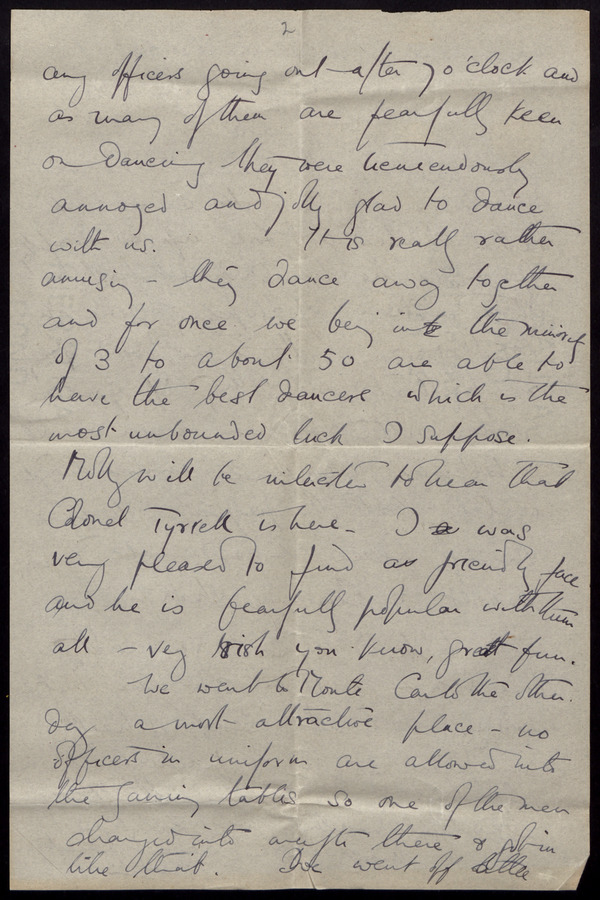 2
any officers going out after 7 o'clock and
as many of them are fearfully keen
on dancing they were tremendously
annoyed and jolly glad to dance
with us. It is really rather
amusing - they dance away together
and for once we being in the minority
of 3 to about 50 are able to
have the best dancers which is the
most unbounded luck I suppose.
Molly will be interested to hear that
Colonel Tyrrell is here - I was
very pleased to find a friendly face
and he is fearfully popular with them
all - very Irish you know, great fun.
We went to Monte Carlo the other
day a most attractive place - no
officers in uniform are allowed into
the gaming tables so one of the men
changed into mufti there & got in
like that. We went off